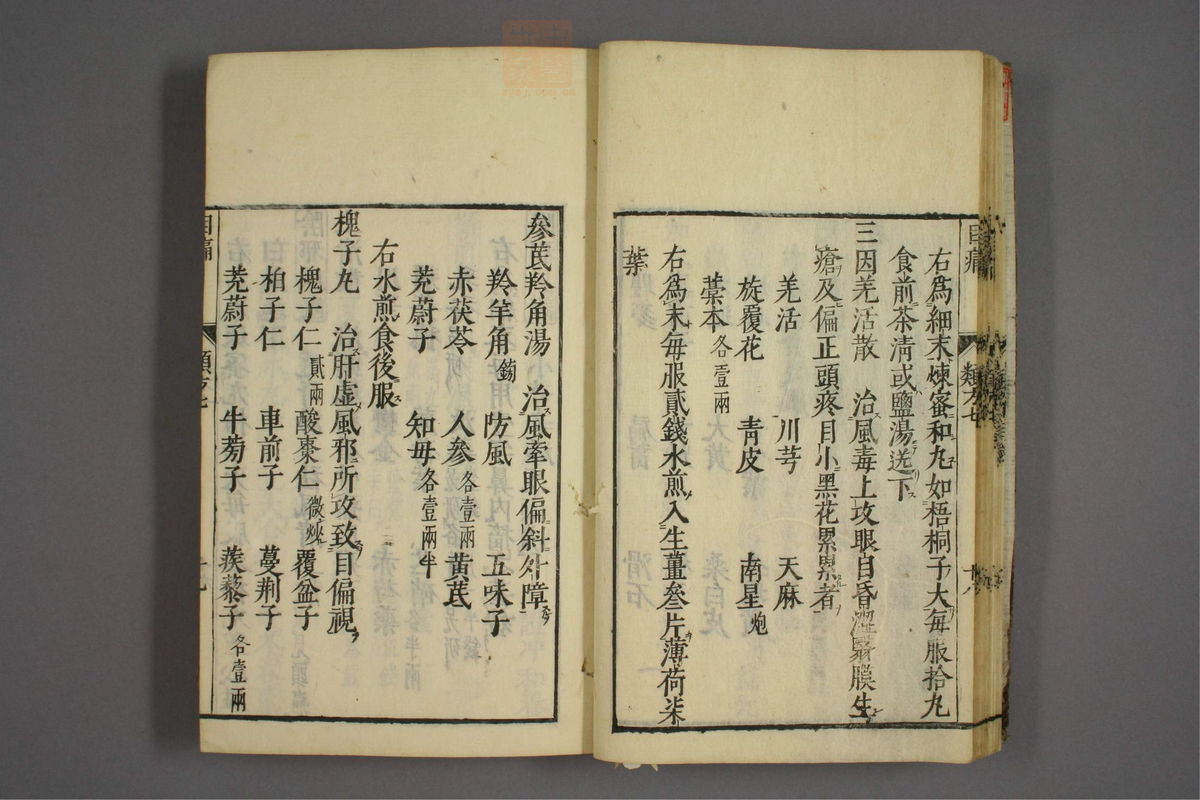 右為細末煉蜜和丸如梧桐子大每服拾丸
食前茶清或鹽湯送下
三因羌活散　治風毒上攻眼目昏澀翳膜生
瘡及偏正頭疼目小黑花累累者
羌活　川芎　天麻
旋覆花　青皮　南星炮
藁本各壹兩
右為末每服貳錢水煎入生薑叄片薄荷柒
葉
參芪羚角湯　治風牽眼偏斜外障
羚羊角鎊　防風　五味子
赤茯苓　人參各壹兩　黃芪
茺蔚子　知母各壹兩半
右水煎食後服
槐子丸　治肝虛風邪所攻致目偏視
槐子仁貳兩　酸棗仁微炒　覆盆子
柏子仁　車前子　蔓荆子
茺蔚子　牛蒡子　蒺藜子各壹兩